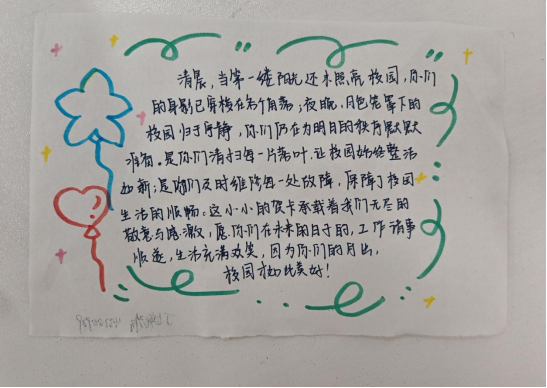 清晨，当第一缕阳光还未照亮校园，你们
的身影已穿梭在各个角落；夜晚，月色笼罩下的
校园归于宁静，你们仍在为明日的秩序默默
准备。是你们清扫每一片落叶，让校园始终整洁
如新；是你们及时维修每一处故障，保障了校园
生活的顺畅。这小小的贺卡承载着我们无尽的
敬意与感激，愿你们在未来的日子的，工作诸事
顺遂，生活充满欢笑，因为你们的付出，
校园才如此美好！